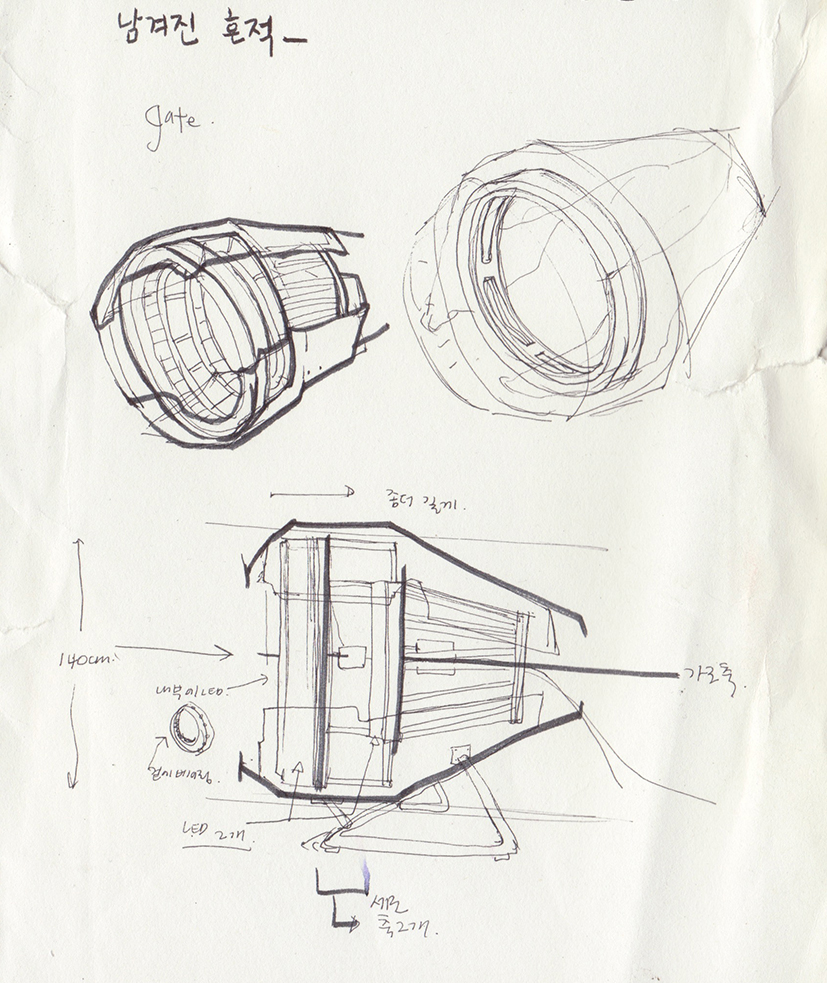 남겨진 흔적_
gate.
좀더 길게.
140cm.
가로축.
내부에 LED.
겉이 베어링.
LED 2개.
세로
축2개.